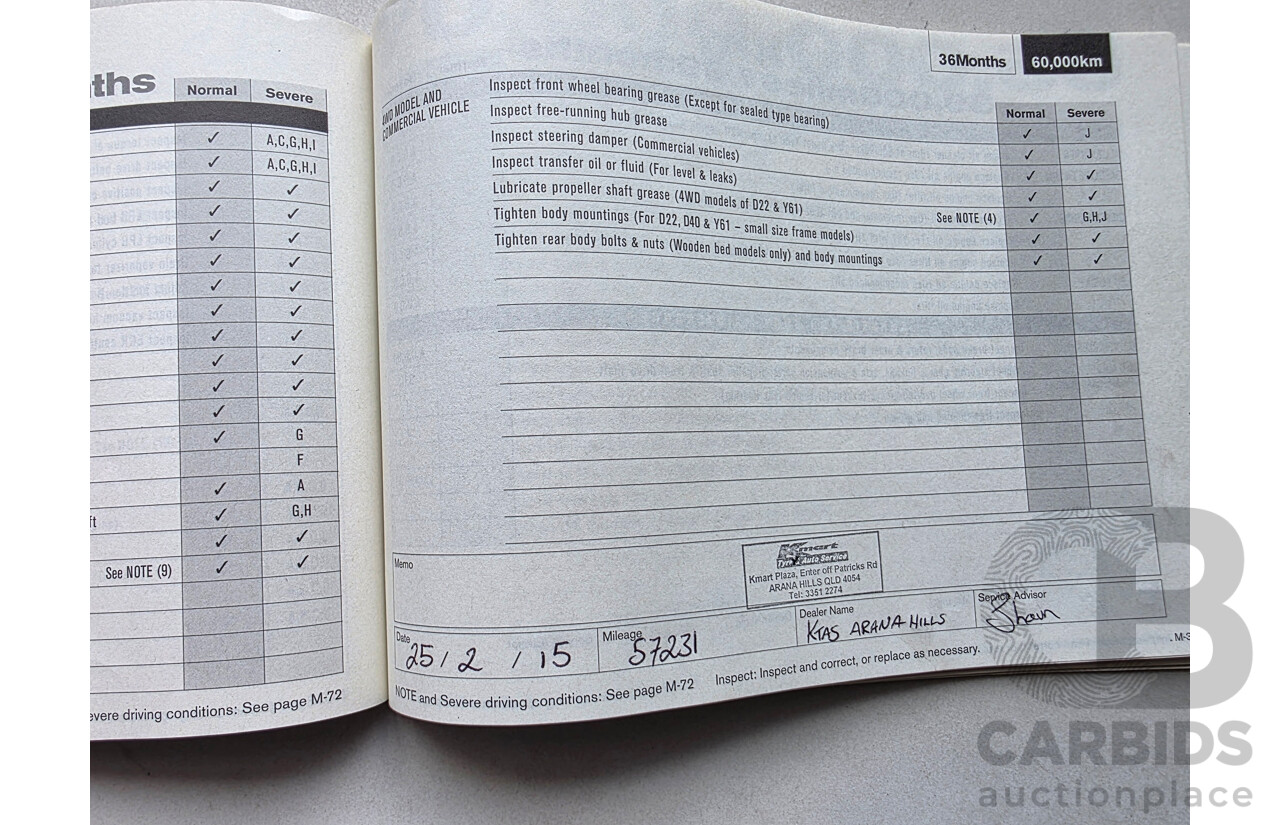 ths
Normal Severe
✓ A,C,G,H,I
✓ A,C,G,H,I
✓ ✓
✓ ✓
✓ ✓
✓ ✓
✓ ✓
✓ ✓
✓ ✓
✓ ✓
✓ ✓
✓ ✓
✓ G
F
✓ A
ft ✓ G,H
✓ ✓
See NOTE (9) ✓ ✓
evere driving conditions: See page M-72
36Months 60,000km
Normal Severe
4WD MODEL AND
COMMERCIAL VEHICLE
Inspect front wheel bearing grease (Except for sealed type bearing) ✓ J
Inspect free-running hub grease ✓ J
Inspect steering damper (Commercial vehicles) ✓ ✓
Inspect transfer oil or fluid (For level & leaks) ✓ ✓
Lubricate propeller shaft grease (4WD models of D22 & Y61) See NOTE (4) ✓ G,H,J
Tighten body mountings (For D22, D40 & Y61 – small size frame models) ✓ ✓
Tighten rear body bolts & nuts (Wooden bed models only) and body mountings ✓ ✓
Memo
Kmart
Tyre & Auto Service
Kmart Plaza, Enter off Patricks Rd
ARANA HILLS QLD 4054
Tel: 3351 2274
Date 25 / 2 / 15 Mileage 57231 Dealer Name KTAS ARANA HILLS Service Advisor Shaun
NOTE and Severe driving conditions: See page M-72 Inspect: Inspect and correct, or replace as necessary.
CARBIDS
auctionplace